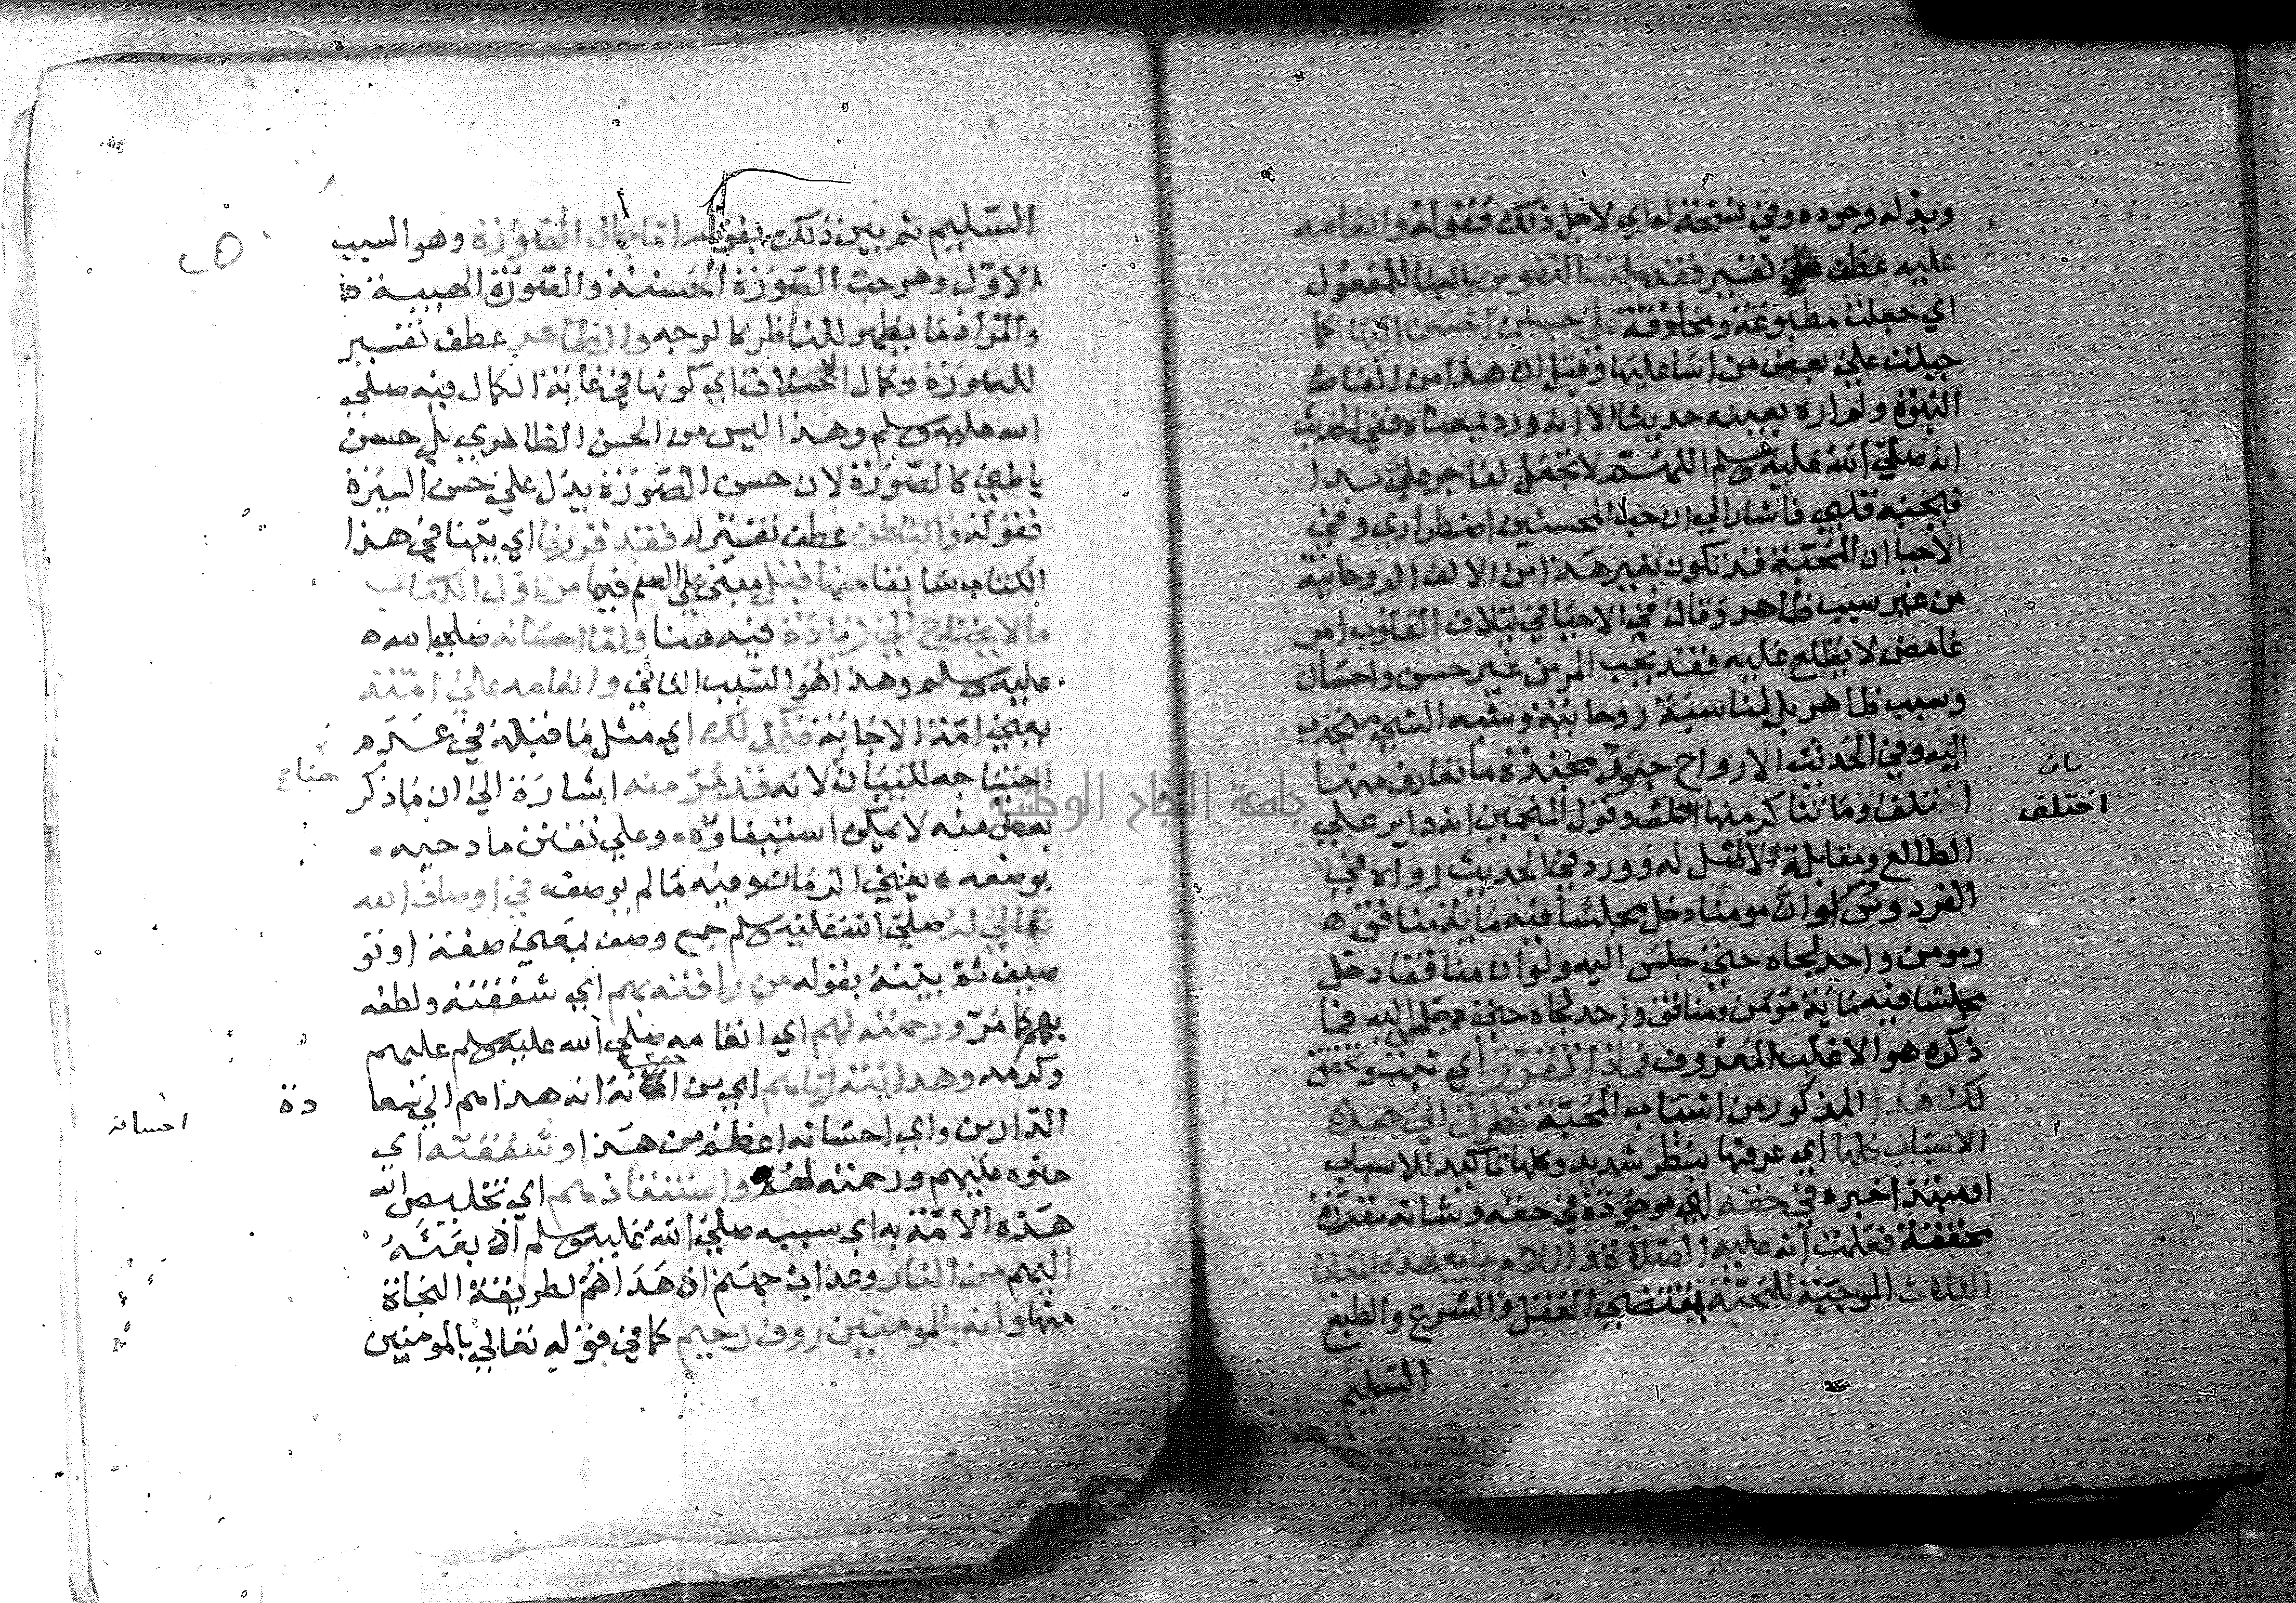 وبذله وجوده وفي نسخة له اي لاجل ذلك فقوله وانعامه
عليه عطف تفسير فقد جلبت النفوس بالبنا للمفعول
اي جعلت مطبوعة ومخلوقة على حب من احسن اليها كما
جبلت على بعض من اسا عليها وقيل ان هذا من الفاظ
النبوة ولم اره بعينه حديثا الا انه ورد بمعناه ففي الحديث
انه صلى الله عليه وسلم اللهم لا تجعل لفاجر علي يدا
فيحبه قلبي فاشار الي ان حب المحسنين اضطراري وفي
الاحيا ان المحبة قد تكون بغير هذا من الالفة الروحانية
من غير سبب ظاهر وقال في الاحيا في ئتلاف القلوب امر
غامض لا يطلع عليه فقد يحب المر من غير حسن واحسان
وسبب ظاهر بل لمناسبة روحانية وشبه الشي منجذب
اليه وفي الحديث الارواح جنود مجندة ما تعارف منها
ائتلف وما تناكر منها اختلف وقول المنجمين انه داير علي
الطالع ومقابلة لا اصل له وورد في الحديث رواه في
الفردوس لو ان مومنا دخل مجلسا فيه ماية منافق
ومومن واحد لجاه حتى جلس اليه ولو ان منافقا دخل
مجلسا فيه ماية مؤمن ومنافق واحد لجاه حتى جلس اليه فما
ذكره هو الاغلب المعروف فاذا تقرر اي ثبت وتحقق
لك هذا المذكور من اسباب المحبة نظرت الى هذه
الاسباب كلها اي عرفتها بنظر شديد وكلها تاكيد للاسباب
في حقه اي موجودة في حقه وشانه مقررة
محققة فعلمت انه عليه الصلاة والسلام جامع لهذه المعاني
الثلاث الموجبة للمحبة بمقتضي العقل والشرع والطبع
التسليم
بان
اختلف
التسليم ثم بين ذلك بقوله اما جمال الصورة وهو السبب
الاول وهو حب الصورة الحسنة والصورة الهيية
والمراد ما يظهر للناظر كالوجه والظاهر عطف تفسير
للصورة وكمال الاخلاق اي كونها في غاية الكمال فيه صلى
الله عليه وسلم وهذا ليس من الحسن الظاهري بل حسن
باطني كالصورة لان حسن الصورة يدل علي حسن السيرة
فقوله والباطن عطف تفسير له فقد قررنا اي بينا في هذا
الكتاب سابقا منها قبل مبني على الضم فيما من اول الكتاب
ما لا يحتاج الى زيادة فيه هنا واما احسانه صلى الله
عليه وسلم وهذا هو السبب الثاني وانعامه على امته
يعني امة الاجابة فكذلك اي مثل ما قبله في عدم
احتياجه للبيان لانه قد مر منه اشارة الى ان ما ذكر
بعض منه لا يمكن استيفاؤه وعلي تفنن مادحيه
بوصفه يفني الزمان وفيه ما لم يوصف في اوصاف الله
تعالى له صلى الله عليه وسلم جمع وصف بمعني صفة او تو
صيف ثم بينه بقوله من رافته بهم اي شفقته ولطفه
بهم كما مر ورحمته لهم اي انعامه صلى الله عليه وسلم عليهم
وكرمه وهدايته اياهم اي من انه هداهم الي سعا
الدارين واي احسانه اعظم من هذا وشفقته اي
حنوه عليهم ورحمته لهم واستنقاذهم اي تخليص الله
هذه الامة به اي بسببه صلى الله عليه وسلم اذ بعثه
اليهم من النار وعذاب جهنم اذ هداهم لطريقة النجاة
منها وانه بالمومنين روف رحيم كما في قوله تعالي بالمومنين
دة
احسانه
جامعة النجاح الوطنية